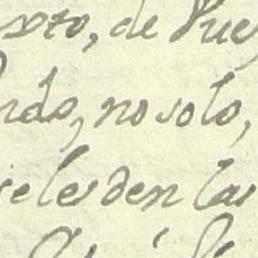 sto, de Vue
ndo, no solo,
se les den las